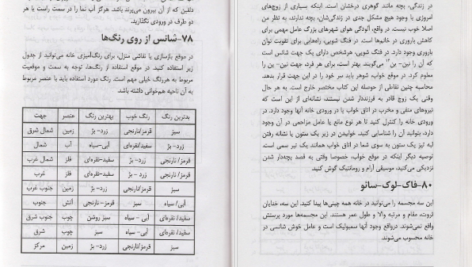 در زندگی، بچه ماند. گوهری درخشان است. اینکه بسیاری از زوج‌های
امروزی با وجود هیچ مشکل جدی در زندگی‌شان، بچه ندارند، به نظر من
خوب نیست. در واقع، آلودگی هوای شهرهای بزرگ عامل مهمی برای
کاهش باروری در خانم‌ها است. در فنگ شویی، راه‌هایی برای تقویت توان
باروری وجود دارد. در فنگ شویی، هرشخص دارای یک جهت شانس است
که آن را نین-ین می‌گویند. بهتر است، برای هر جهت نین-ین را
معلوم کرد. در موقع خواب شوهر باید سر خود را در این جهت قرار بدهد.
محاسبه چنین نقاطی از حوصله این کتاب مختصر خارج است. به هر حال
وقتی یک زوج قادر به فرزنددار شدن نیستند، نشانه‌ای از این است که
نیروهای منفی و مخرب در اتاق خواب یا در ورودی خانه آنها وجود دارد. در
ورودی خانه را کنترل کنید تا هر نوع مانع یا عامل مزاحمی در آن وجود
نداشته باشد، آن را شناسایی کنید. خوابیدن در زیر یک ستون یا نشانه رفتن
لبه تیز یک ستون به سوی شما در اتاق خواب هم یک تیر سمی است.
توصیه دیگر اینکه در موقع خواب خصوصا وقتی به قصد بچه‌دار شدن
نزدیکی می‌کنید، موسیقی آرام و رومانتیک گوش کنید.
۸۰- فاک-لوک-سائو
این سه مجسمه را می‌توانید در خانه همه چینی‌ها پیدا کنید. این سه، خدایان
ثروت، مقام و مرتبه والا و طول عمر هستند. این مجسمه‌ها مورد پرستش
واقع نمی‌شوند. درواقع وجود آنها سمبولیک است و عامل خوش شانسی در
خانه محسوب می‌شوند
دلفین که از آن بیرون می‌روند باشد. هرگز آب نما را در راست یا هر
دو طرف در ورودی نگذارید.
۷۸- شانس از روی رنگ‌ها
در موقع بازسازی یا نقاشی منزل، برای رنگ‌آمیزی خانه می‌توانید از جدول
زیر استفاده کنید. در موقع استفاده از رنگ‌ها، توجه به سمت و موقعیت
مربوط به هررنگ خیلی مهم است. رنگ مورد استفاده باید با عنصر مربوط
به آن ناحیه هم‌خوانی داشته باشد.
جهت عنصر بهترین رنگ رنگ خوب بدترین رنگ
شمال شرق زمین زرد- بژ قرمز/نارنجی سبز
شمال آب آبی-سیاه سفید/نقره‌ای زرد-بژ
شمال غرب فلز سفید/نقره‌ای زرد-بژ قرمز/ نارنجی
غرب فلز سفید/نقره‌ای زرد- بژ قرمز/نارنجی
جنوب غرب زمین زرد- بژ قرمز/نارنجی سبز
جنوب آتش قرمز/نارنجی سبز آبی- سیاه
جنوب شرق چوب سبز روشن آبی - سیاه سفید/ نقره‌ای
شرق چوب سبز آبی - سیاه سفید/ نقره‌ای
مرکز زمین زرد- بژ قرمز/نارنجی سبز